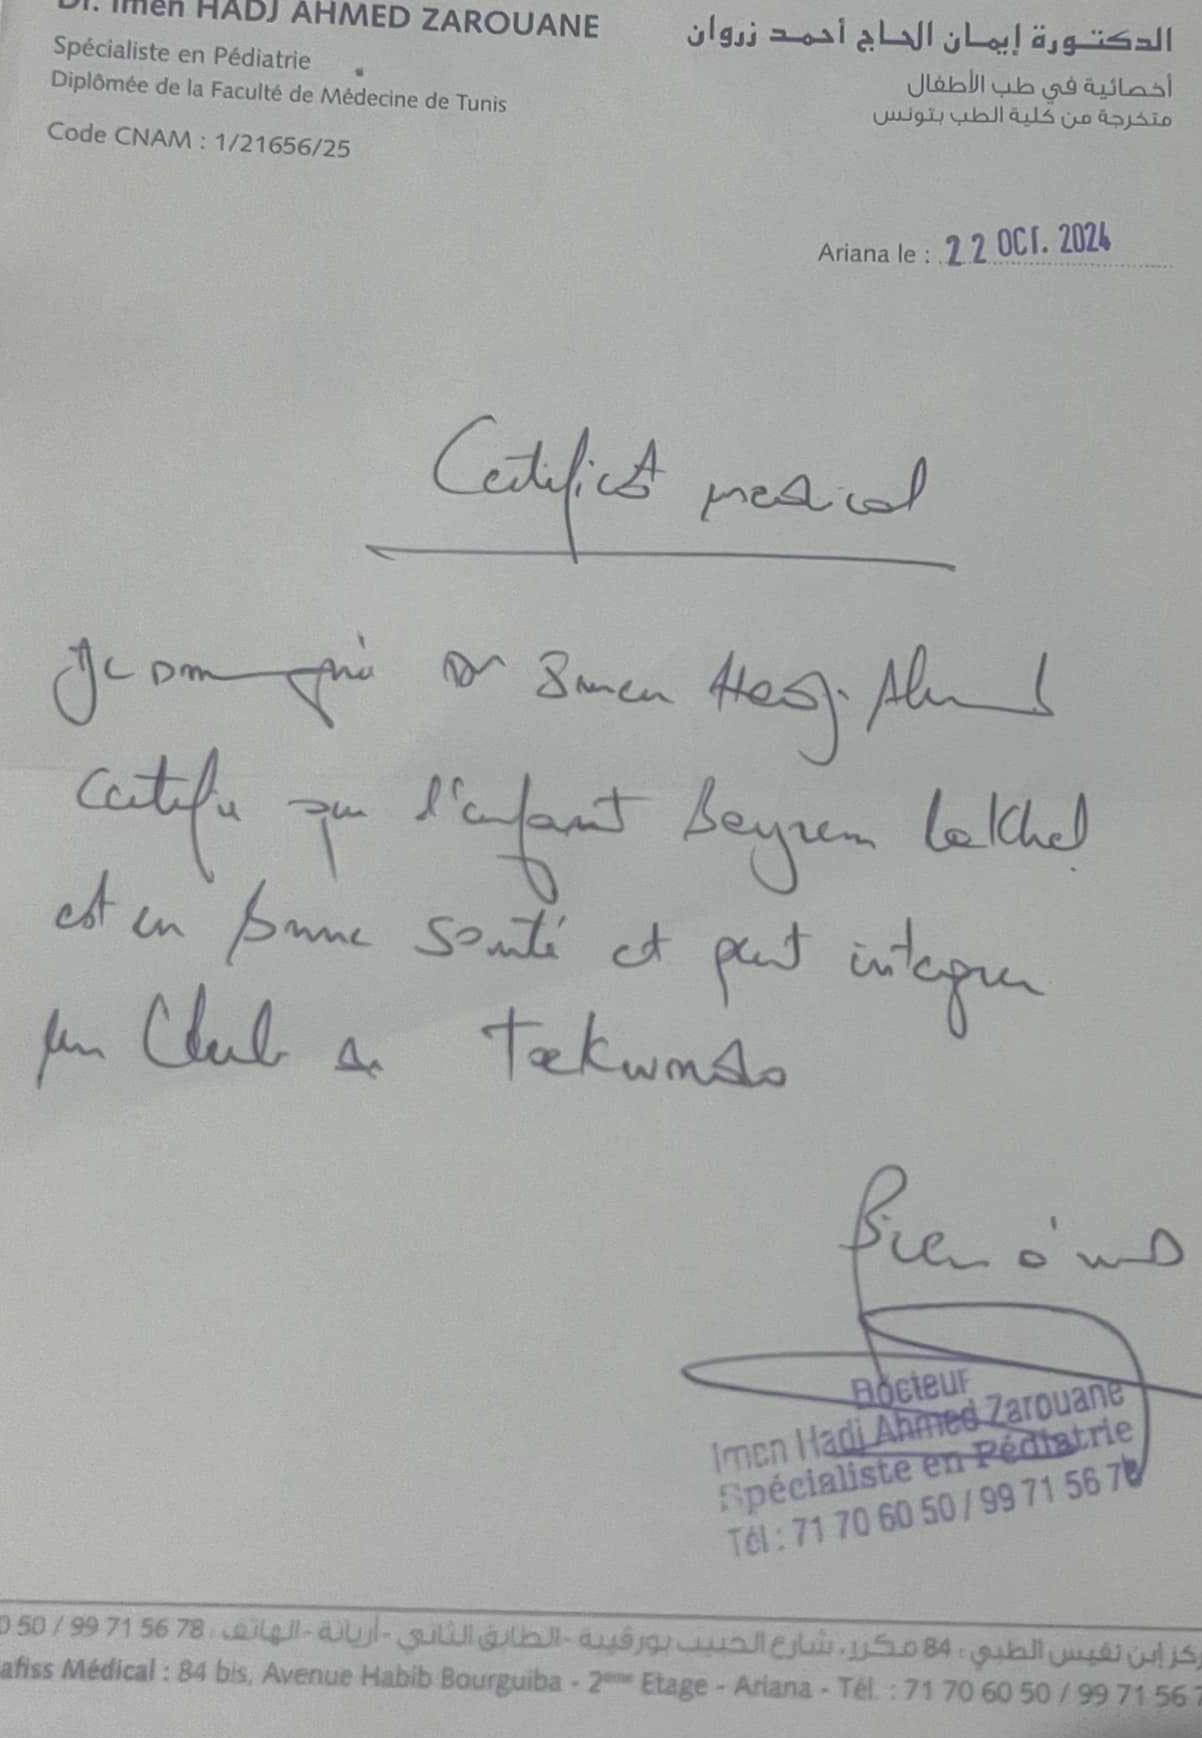 Dr. Imen HADJ AHMED ZAROUANE
Spécialiste en Pédiatrie
Diplômée de la Faculté de Médecine de Tunis
Code CNAM : 1/21656/25
الدكتورة إيمان الحاج أحمد زروان
أخصائية في طب الأطفال
متخرجة من كلية الطب بتونس
Ariana le : 22 OCT. 2024
Certificat medical
Je Dr Imen Hadj Ahmed
Certifie que l'enfant Beyrem Lakhal
est en bonne santé et peut integrer
un Club de Taekwondo
Docteur
Imen Hadj Ahmed Zarouane
Spécialiste en Pédiatrie
Tél : 71 70 60 50 / 99 71 56 78
ابن نفيس الطبي ، 84 مكرر، شارع الحبيب بورقيبة -الطابق الثاني -أريانة -الهاتف : 0 50 / 99 71 56 78
afiss Médical : 84 bis, Avenue Habib Bourguiba - 2ème Etage - Ariana - Tél. : 71 70 60 50 / 99 71 56 7